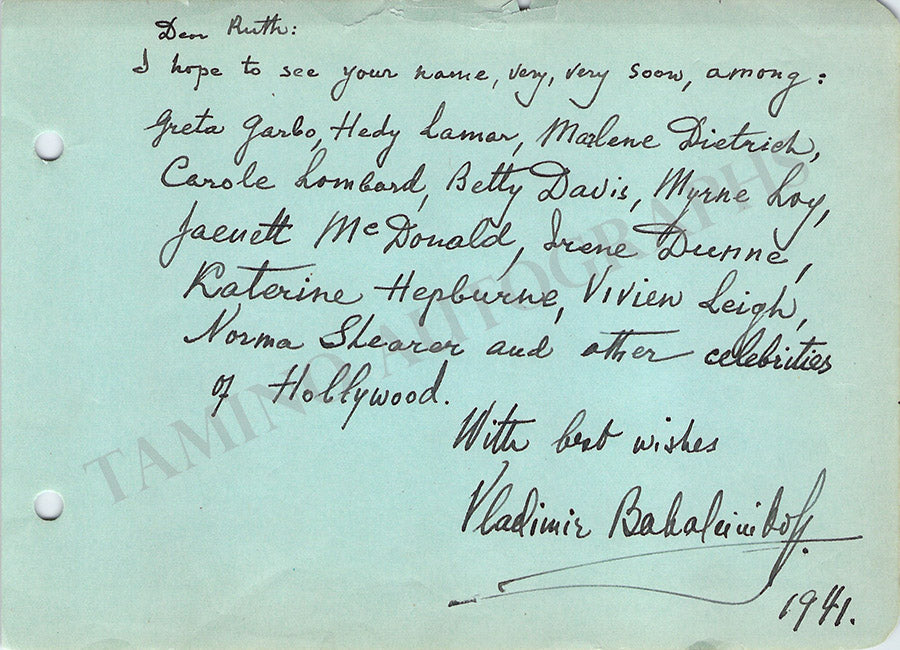 Dear Ruth:
I hope to see your name, very, very soon, among:
Greta Garbo, Hedy Lamar, Marlene Dietrich,
Carole Lombard, Betty Davis, Myrne Loy,
Jaenett McDonald, Irene Dunne,
Katerine Hepburne, Vivien Leigh,
Norma Shearer and other celebrities
of Hollywood.
With best wishes
Vladimir Bakaleinikoff.
1941.
TAMINO AUTOGRAPHS